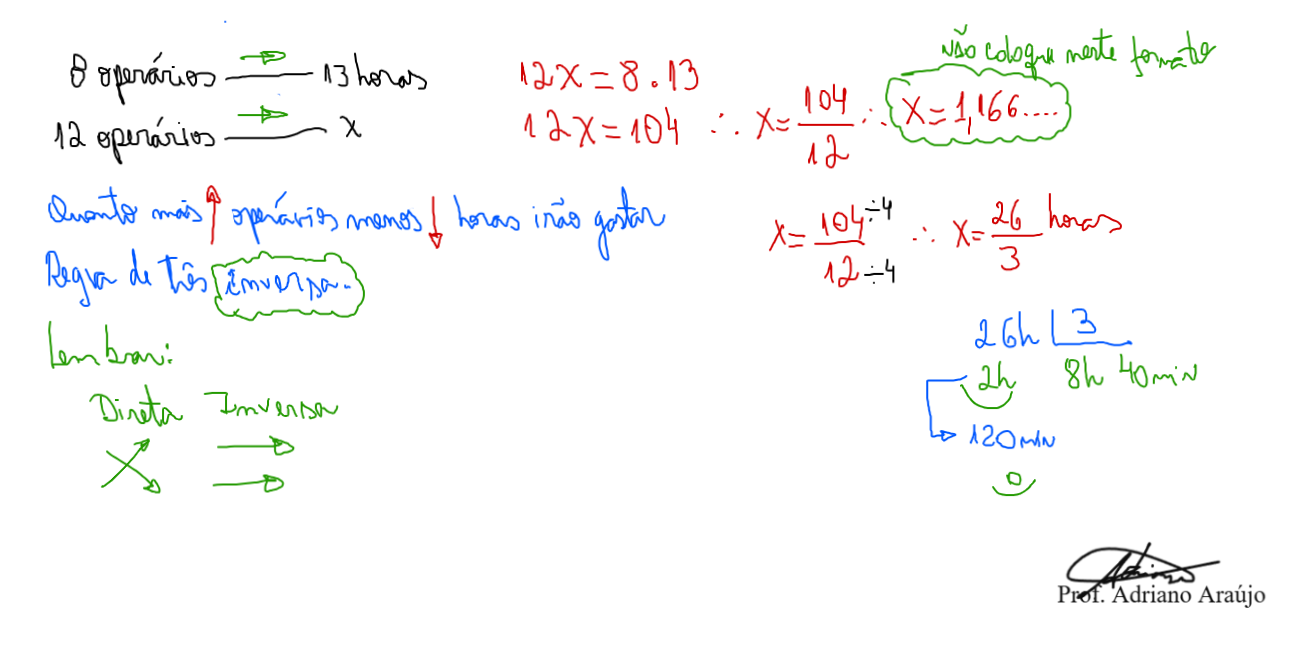 8 operários 13 horas
12 operários x
Quanto mais operários menos horas irão gastar
Regra de três Inversa.
Lembrar:
Direta Inversa
12x=8.13
12x=104 ∴ x=104/12 ∴ x=1,166....
não coloque neste formato
x=104÷4/12÷4 ∴ x=26/3 horas
26h 3
2h 8h 40min
120min
0
Prof. Adriano Araújo